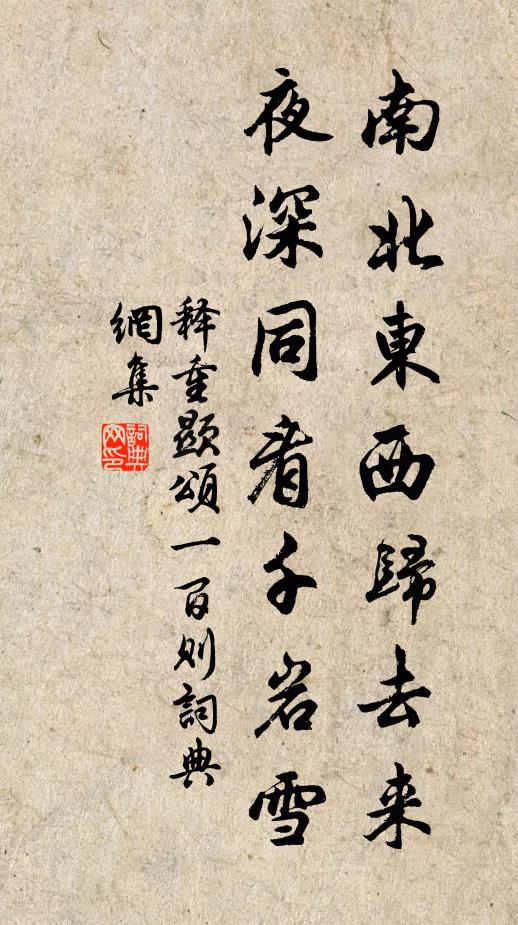 南北東西歸去来
夜深同看千岩雪
释重顯頌一百则詞典
網集
詞典網印